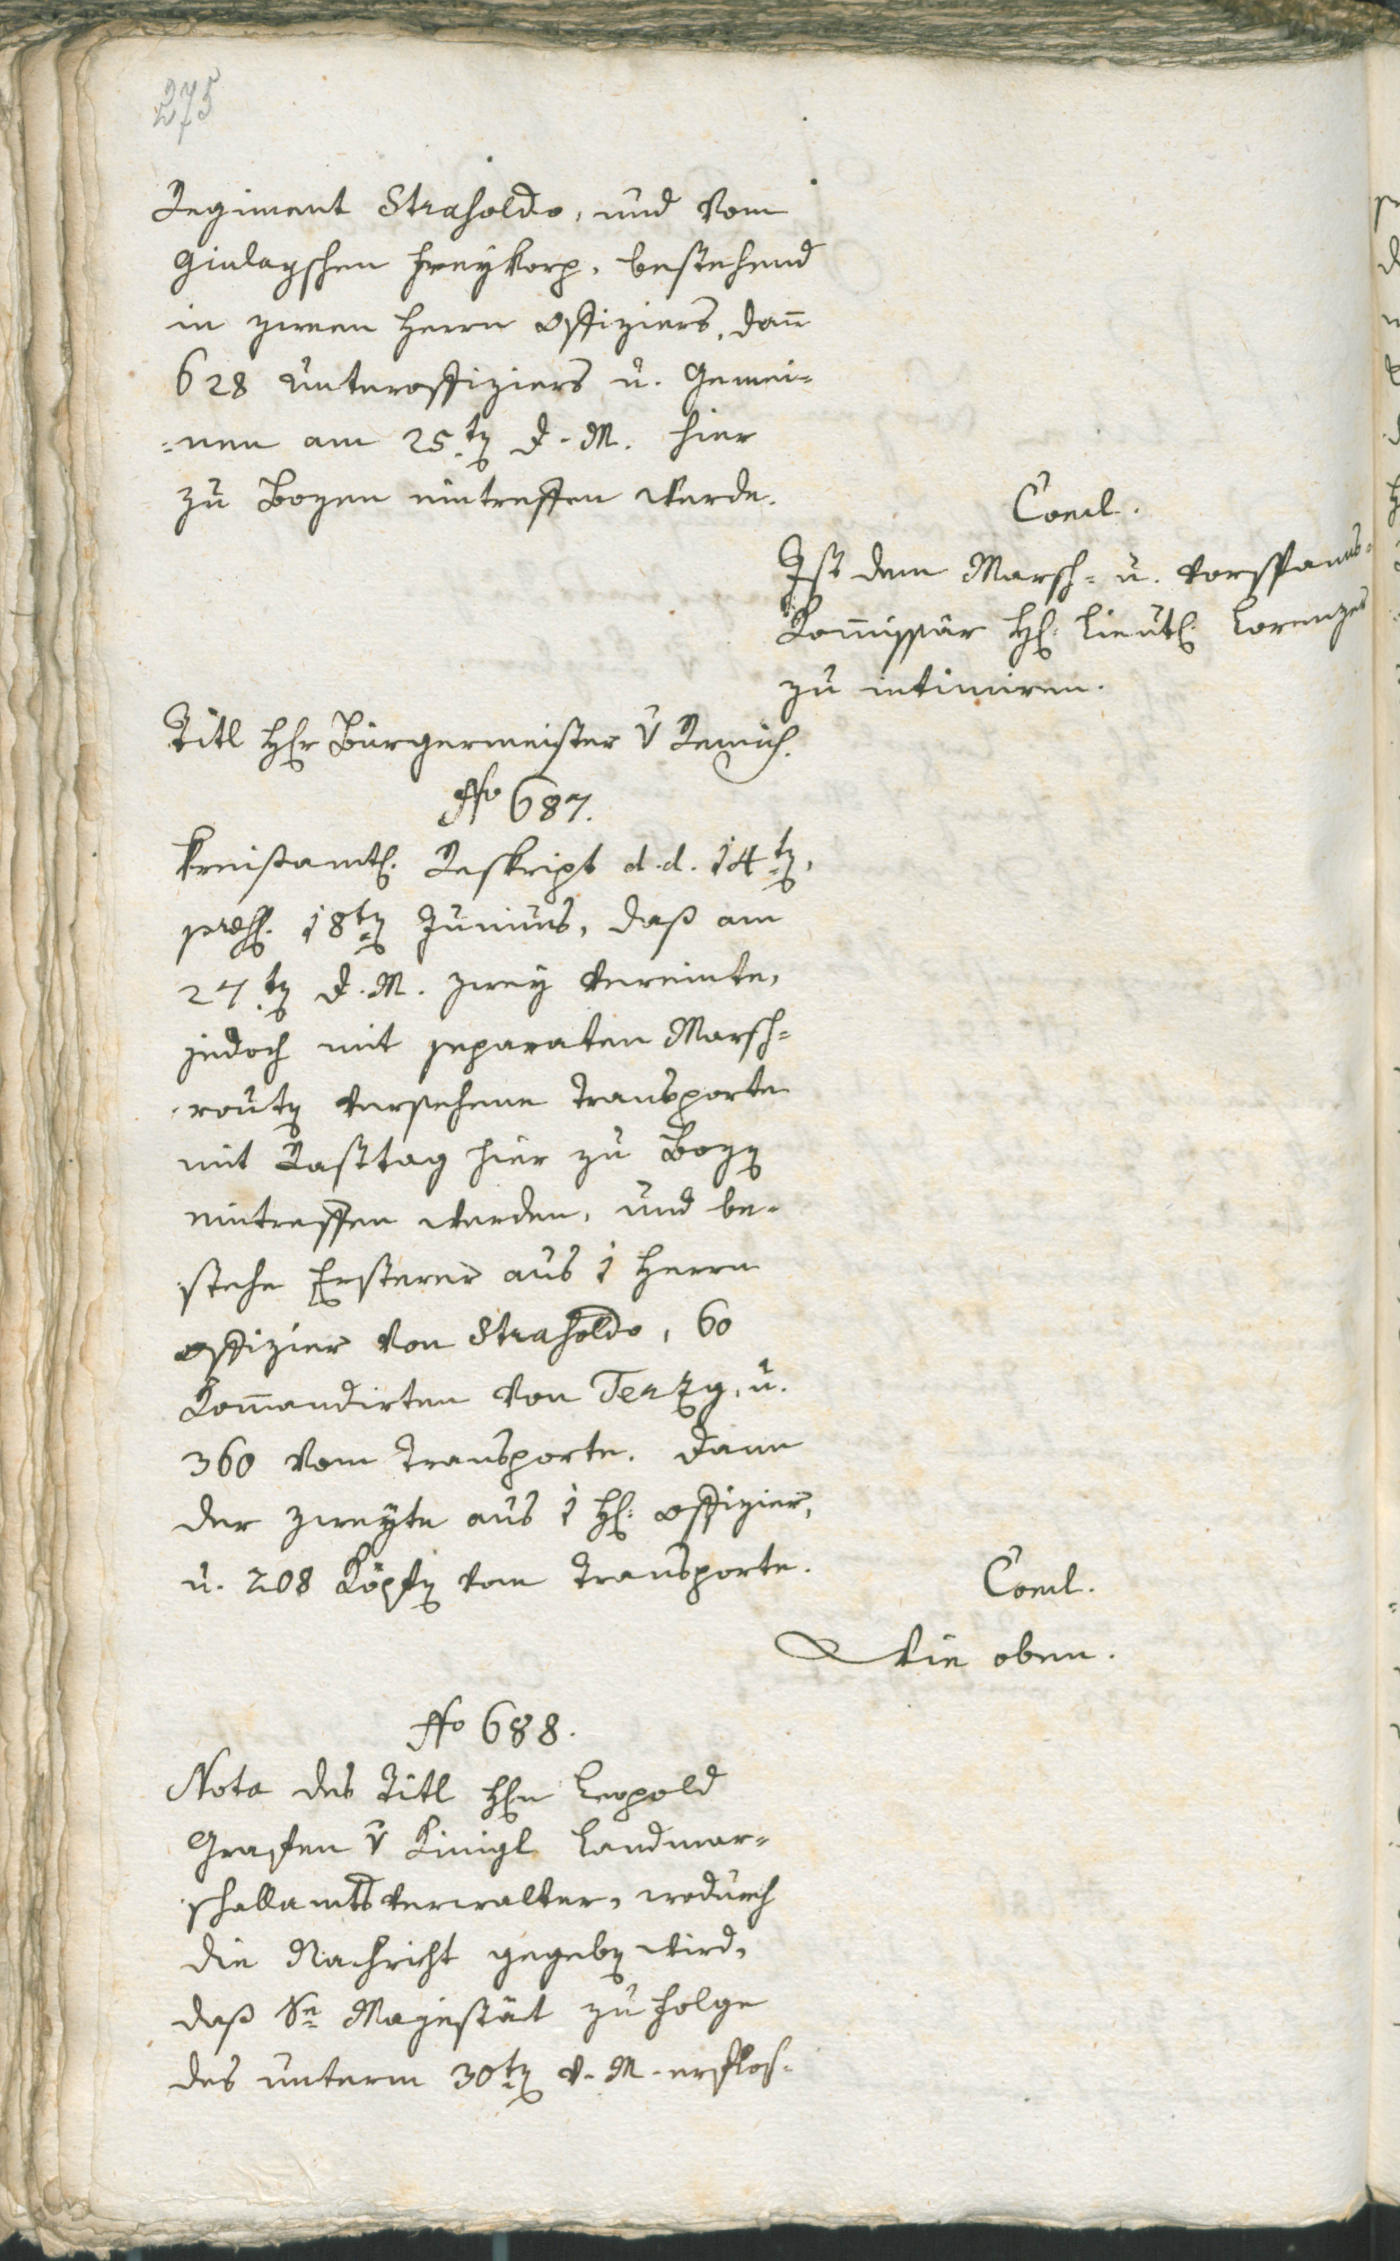 275
Regiment Straſoldo, und vom
Giulayschen Freykorp, bestehend
in zween Herrn Offiziers, dan̅
628 Unteroffiziers u. Gemei-
-nen am 25.ten d. M. hier
zu Bozen eintreffen werde.
Concl.
Ist dem Marsch- u. Vorspanns-
Kom̅issär H. Lieut. Lorenzer
zu intimiren.
Titl Hr Bürgermeister v
No 687.
Kreisamtl. Reskript d. d. 14ten,
præs. 18ten Junius, daß am
27.ten d. M. zwey vereinte,
jedoch mit separaten Marsch-
routen versehene Transporte
mit Rasttag hier zu Bozen
eintreffen werden, und be-
stehe Ersterer aus 1 Herrn
Offizier von Straſoldo, 60
Kom̅andirten von Terzy, u.
360 vom Transporte. Dann
der zweyte aus 1 H. Offizier,
u. 208 Köpfen vom Transporte.
Concl.
Wie oben.
No 688.
Nota des Titl Hrn Leopold
Grafen v Künigl Landmar-
schallamtsverwalter, wodurch
die Nachricht gegeben wird,
daß Se Majestät zu Folge
des unterm 30ten v. M. erfloß-